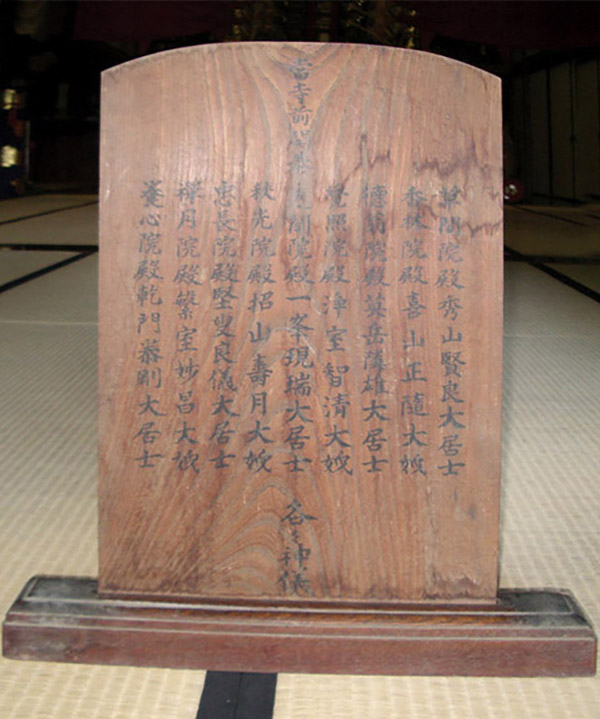 華開院殿秀山賢良大居士
香林院殿喜山正隨大姉
德翁院殿英岳薄雄大居士
覺照院殿淨室智清大姉
當寺前開基 開院殿一峯現瑞大居士 各々神儀
秋光院殿招山壽月大姉
惠長院殿堅叟良儀大居士
禪月院殿繁室妙昌大姉
蓬心院殿乾門恭剛大居士